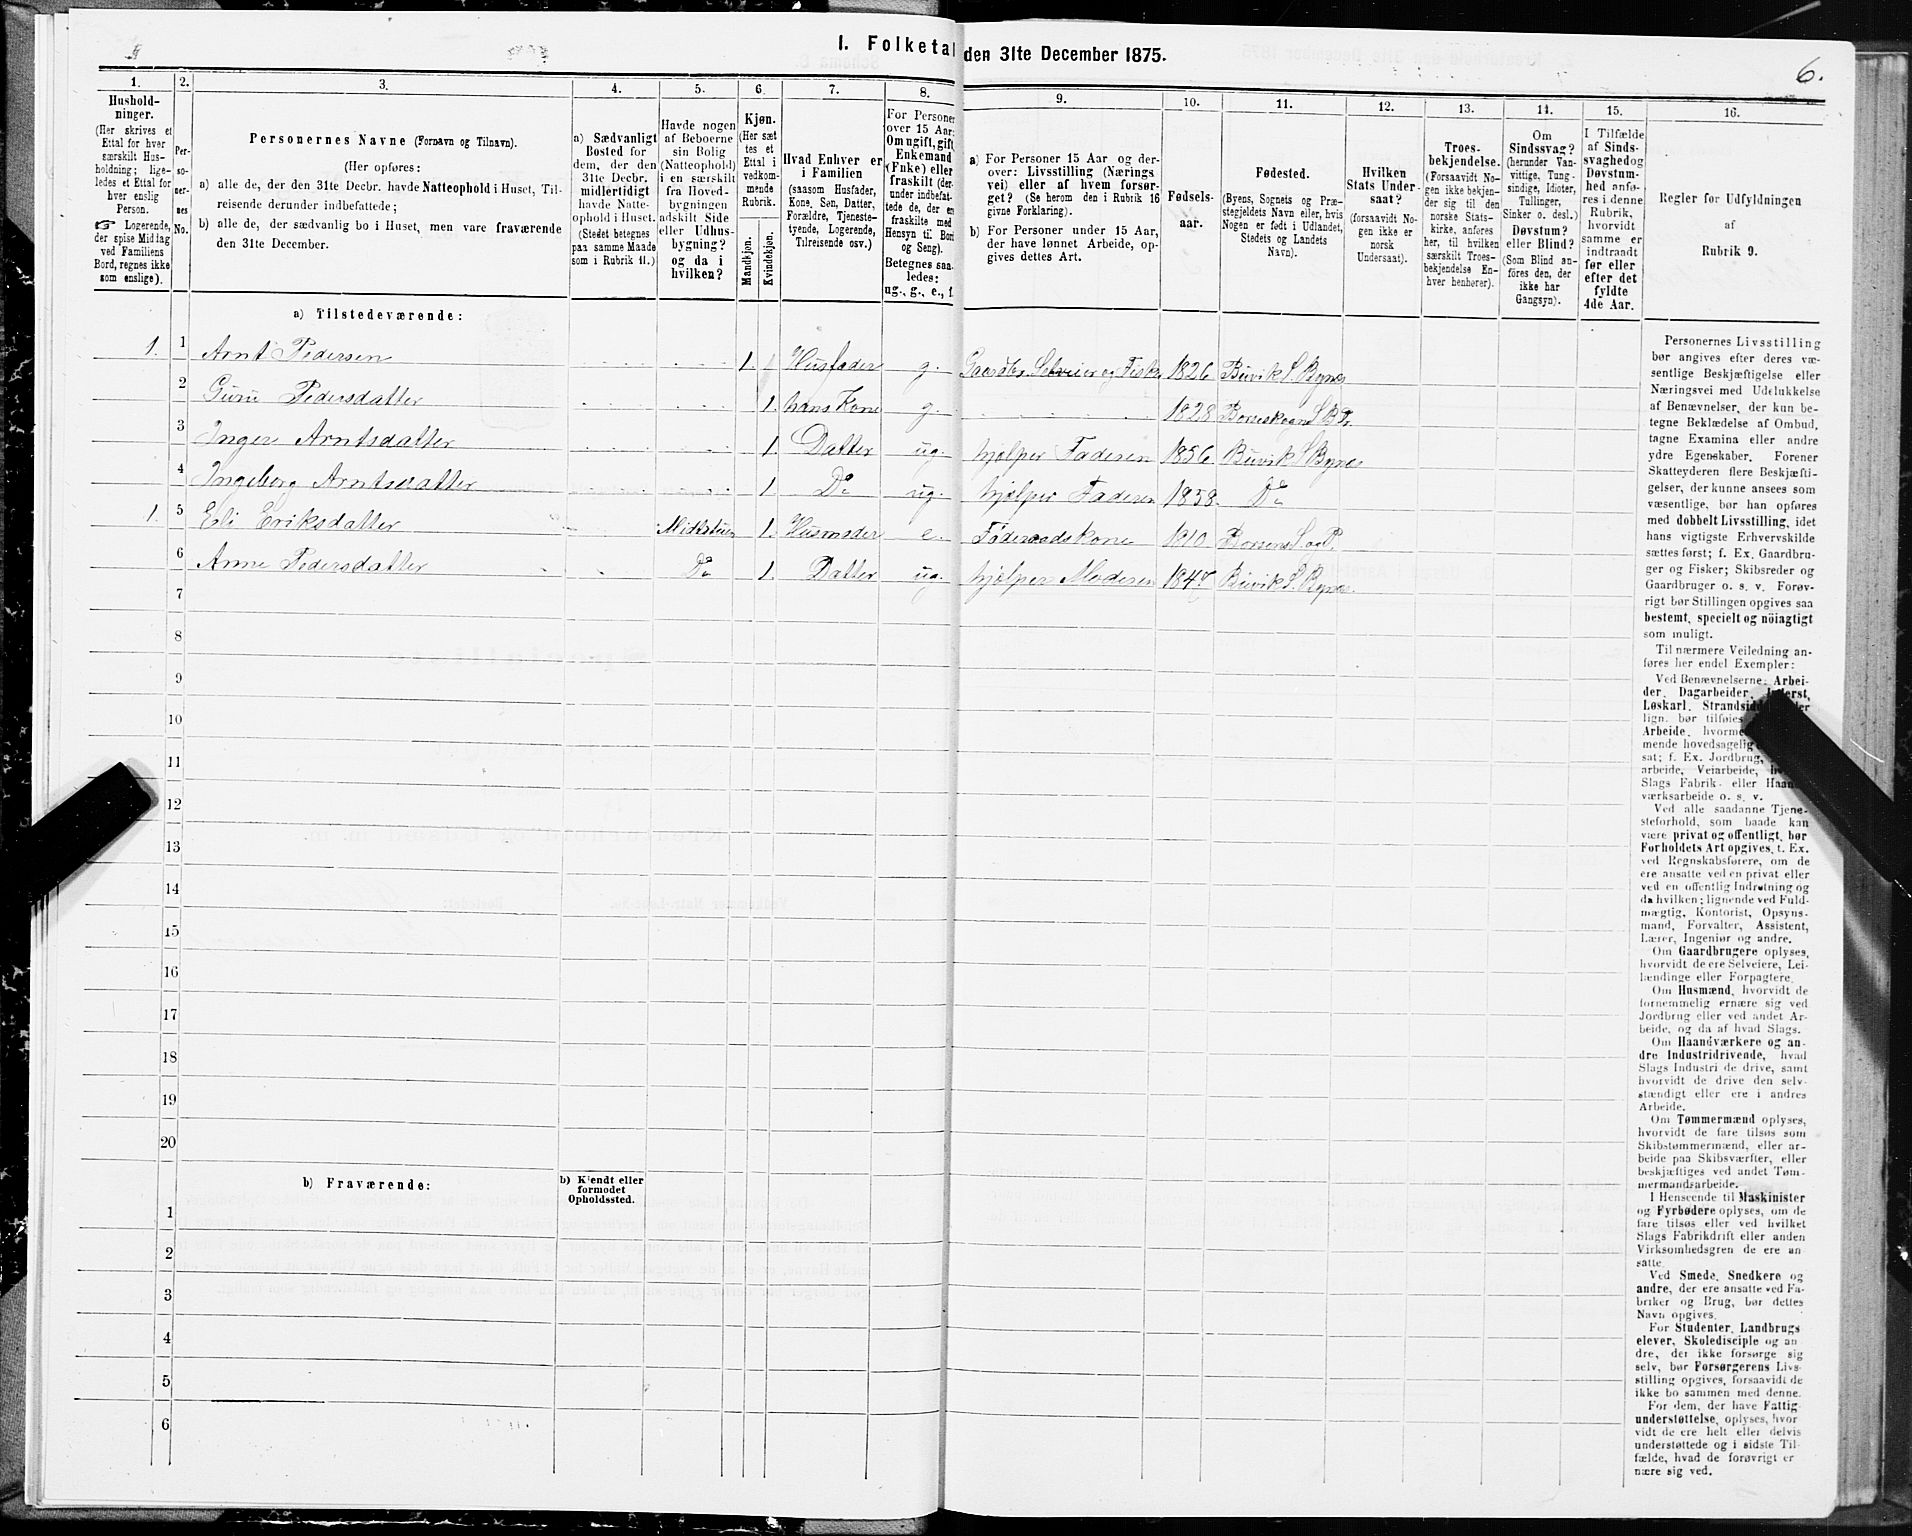 I. Folketal den 31te December 1875.
6.
1.
Hushold-
ninger.
(Her skrives et
Ettal for hver
særskilt Hus-
holdning; lige-
ledes et Ettal for
hver enslig
Person.
☞ Logerende,
der spise Middag
ved Familiens
Bord, regnes ikke
som enslige).
2.
Per-
so-
ner-
nes
No.
3.
Personernes Navne (Fornavn og Tilnavn).
(Her opføres:
a) alle de, der den 31te Decbr. havde Natteophold i Huset, Til-
reisende derunder indbefattede;
b) alle de, der sædvanlig bo i Huset, men vare fraværende
den 31te December.
4.
a) Sædvanligt
Bosted for
dem, der den
31te Decbr.
midlertidigt
havde Natte-
ophold i Huset.
(Stedet betegnes
paa samme Maade
som i Rubrik 11.)
5.
Havde nogen
af Beboerne
sin Bolig
(Natteophold)
i en særskilt
fra Hoved-
bygningen
adskilt Side
eller Udhus-
bygning?
og da i
hvilken?
6.
Kjøn.
(Her sæt
tes et
Ettal i
vedkom-
mende
Rubrik.
Mandkjøn.
Kvindekjøn.
7.
Hvad Enhver er
i Familien
(saasom Husfader,
Kone, Søn, Datter,
Forældre, Tjeneste-
tyende, Logerende,
Tilreisende osv.)
8.
For Personer
over 15 Aar:
Om ugift, gift,
Enkemand
(Enke) eller
fraskilt (der-
under indbefat-
tede de, der ere
fraskilte med
Hensyn til Bord
og Seng).
Betegnes saa-
ledes:
ug., g., e., f.
9.
a) For Personer 15 Aar og der-
over: Livsstilling (Nærings
vei) eller af hvem forsør-
get? (Se herom den i Rubrik 16
givne Forklaring).
b) For Personer under 15 Aar,
der have lønnet Arbeide, op-
gives dettes Art.
10.
Fødsels-
aar.
11.
Fødested.
(Byens, Sognets og Præ-
stegjeldets Navn eller, hvis
Nogen er født i Udlandet,
Stedets og Landets
Navn).
12.
Hvilken
Stats Under-
saat?
(forsaavidt No-
gen ikke er
norsk
Undersaat).
13.
Troes-
bekjendelse.
(Forsaavidt No-
gen ikke bekjen-
der sig til den
norske Stats-
kirke, anføres
her, til hvilken
særskilt Troes-
bekjendelse En-
hver henhører).
14.
Om
Sindssvag?
(herunder Van-
vittige, Tung-
sindige, Idioter,
Tullinger,
Sinker o. desl.)
Døvstum?
eller Blind?
(Som Blind an-
føres den, der
ikke har
Gangsyn).
15.
I Tilfælde
af Sinds-
svaghed og
Døvstum-
hed anfø-
res i denne
Rubrik,
hvorvidt
samme er
indtraadt
før eller
efter det
fyldte
4de Aar.
16.
Regler for Udfyldningen
af
Rubrik 9.
a) Tilstedeværende:
1. 1 Arnt Pedersen 1. Husfader g. Gaardbr. Selveier og Fisker 1826 Buvik S. Bynes
2 Guru Pedersdatter 1. hans Kone g. 1828 Børseskogn S B P.
3 Inger Arntsdatter 1. Datter ug. hjælper Faderen 1856 Buvik S Bynes
4 Ingeborg Arntsdatter 1 Do ug. hjælper Faderen 1858. Do
1. 5 Eli Eriksdatter Midtstuen 1. Husmoder e. Føderaadskone 1810 Børsens S. og P.
6 Anne Pedersdatter Do 1. Datter ug. hjælper Moderen 1847 Buvik S. Bynes.
7
8
9
10
11
12
13
14
15
16
17
18
19
20
b) Fraværende:
b) Kjendt eller
formodet
Opholdssted.
1
2
3
4
5
6
Personernes Livsstilling
bør angives efter deres væ-
sentlige Beskjæftigelse eller
Næringsvei med Udelukkelse
af Benævnelser, der kun be-
tegne Beklædelse af Ombud,
tagne Examina eller andre
ydre Egenskaber. Forener
Skatteyderen flere Beskjæfti-
gelser, der kunne ansees som
væsentlige, bør han opføres
med dobbelt Livsstilling, idet
hans vigtigste Erhvervskilde
sættes først; f. Ex. Gaardbru-
ger og Fisker; Skibsreder og
Gaardbruger o. s. v. Forøv-
rigt bør Stillingen opgives saa
bestemt, specielt og nöiagtigt
som muligt.
Til nærmere Veiledning an-
føres her endel Exempler:
Ved Benævnelserne: Arbei-
der, Dagarbeider, Inderst,
Løskarl, Strandsidder eller
lign. bør tilføies
Arbeide, hvorme
mende hovedsagelig
sat; f. Ex. Jordbrug,
arbeide, Veiarbeide,
Slags Fabrik- eller Haand-
værksarbeide o. s. v.
Ved alle saadanne Tjene-
steforhold, som baade kan
være privat og offentligt, bør
Forholdets Art opgives, t. Ex.
ved Regnskabsførere, om de
ere ansatte ved en privat eller
ved en offentlig Indretning og
da hvilken; lignende ved Fuld-
mægtig, Kontorist, Opsyns-
mand, Forvalter, Assistent,
Lærer, Ingeniør og andre.
Om Gaardbrugere oplyses,
hvorvidt de ere Selveiere, Lei-
lændinge eller Forpagtere.
Om Husmænd, hvorvidt de
fornemmelig ernære sig ved
Jordbrug eller ved andet Ar-
beide, og da af hvad Slags.
Om Haandværkere og an-
dre Industridrivende, hvad
Slags Industri de drive, samt
hvorvidt de drive den selv-
stændigt eller ere i andres
Arbeide.
Om Tømmermænd oplyses,
hvorvidt de fare tilsøs som
Skibstømmermænd, eller ar-
beide paa Skibsværfter, eller
beskjæftiges ved andet Tøm-
mermandsarbeide.
I Henseende til Maskinister
og Fyrbødere oplyses, om de
fare tilsøs eller ved hvilket
Slags Fabrikdrift eller anden
Virksomhedsgren de ere an
satte.
Ved Smede, Snedkere og
andre, der ere ansatte ved Fa-
briker og Brug, bør dettes
Navn opgives.
For Studenter, Landbrugs
elever, Skoledisciple og an
dre, der ikke forsørge sig
selv, bør Forsørgerens Livs-
stilling opgives, forsaavidt de
ikke bo sammen med denne.
For dem, der have Fattig-
understøttelse, oplyses, hvor
vidt de ere helt eller delvis
understøttede og i sidste Til-
fælde, hvad de forøvrigt er
nære sig ved.